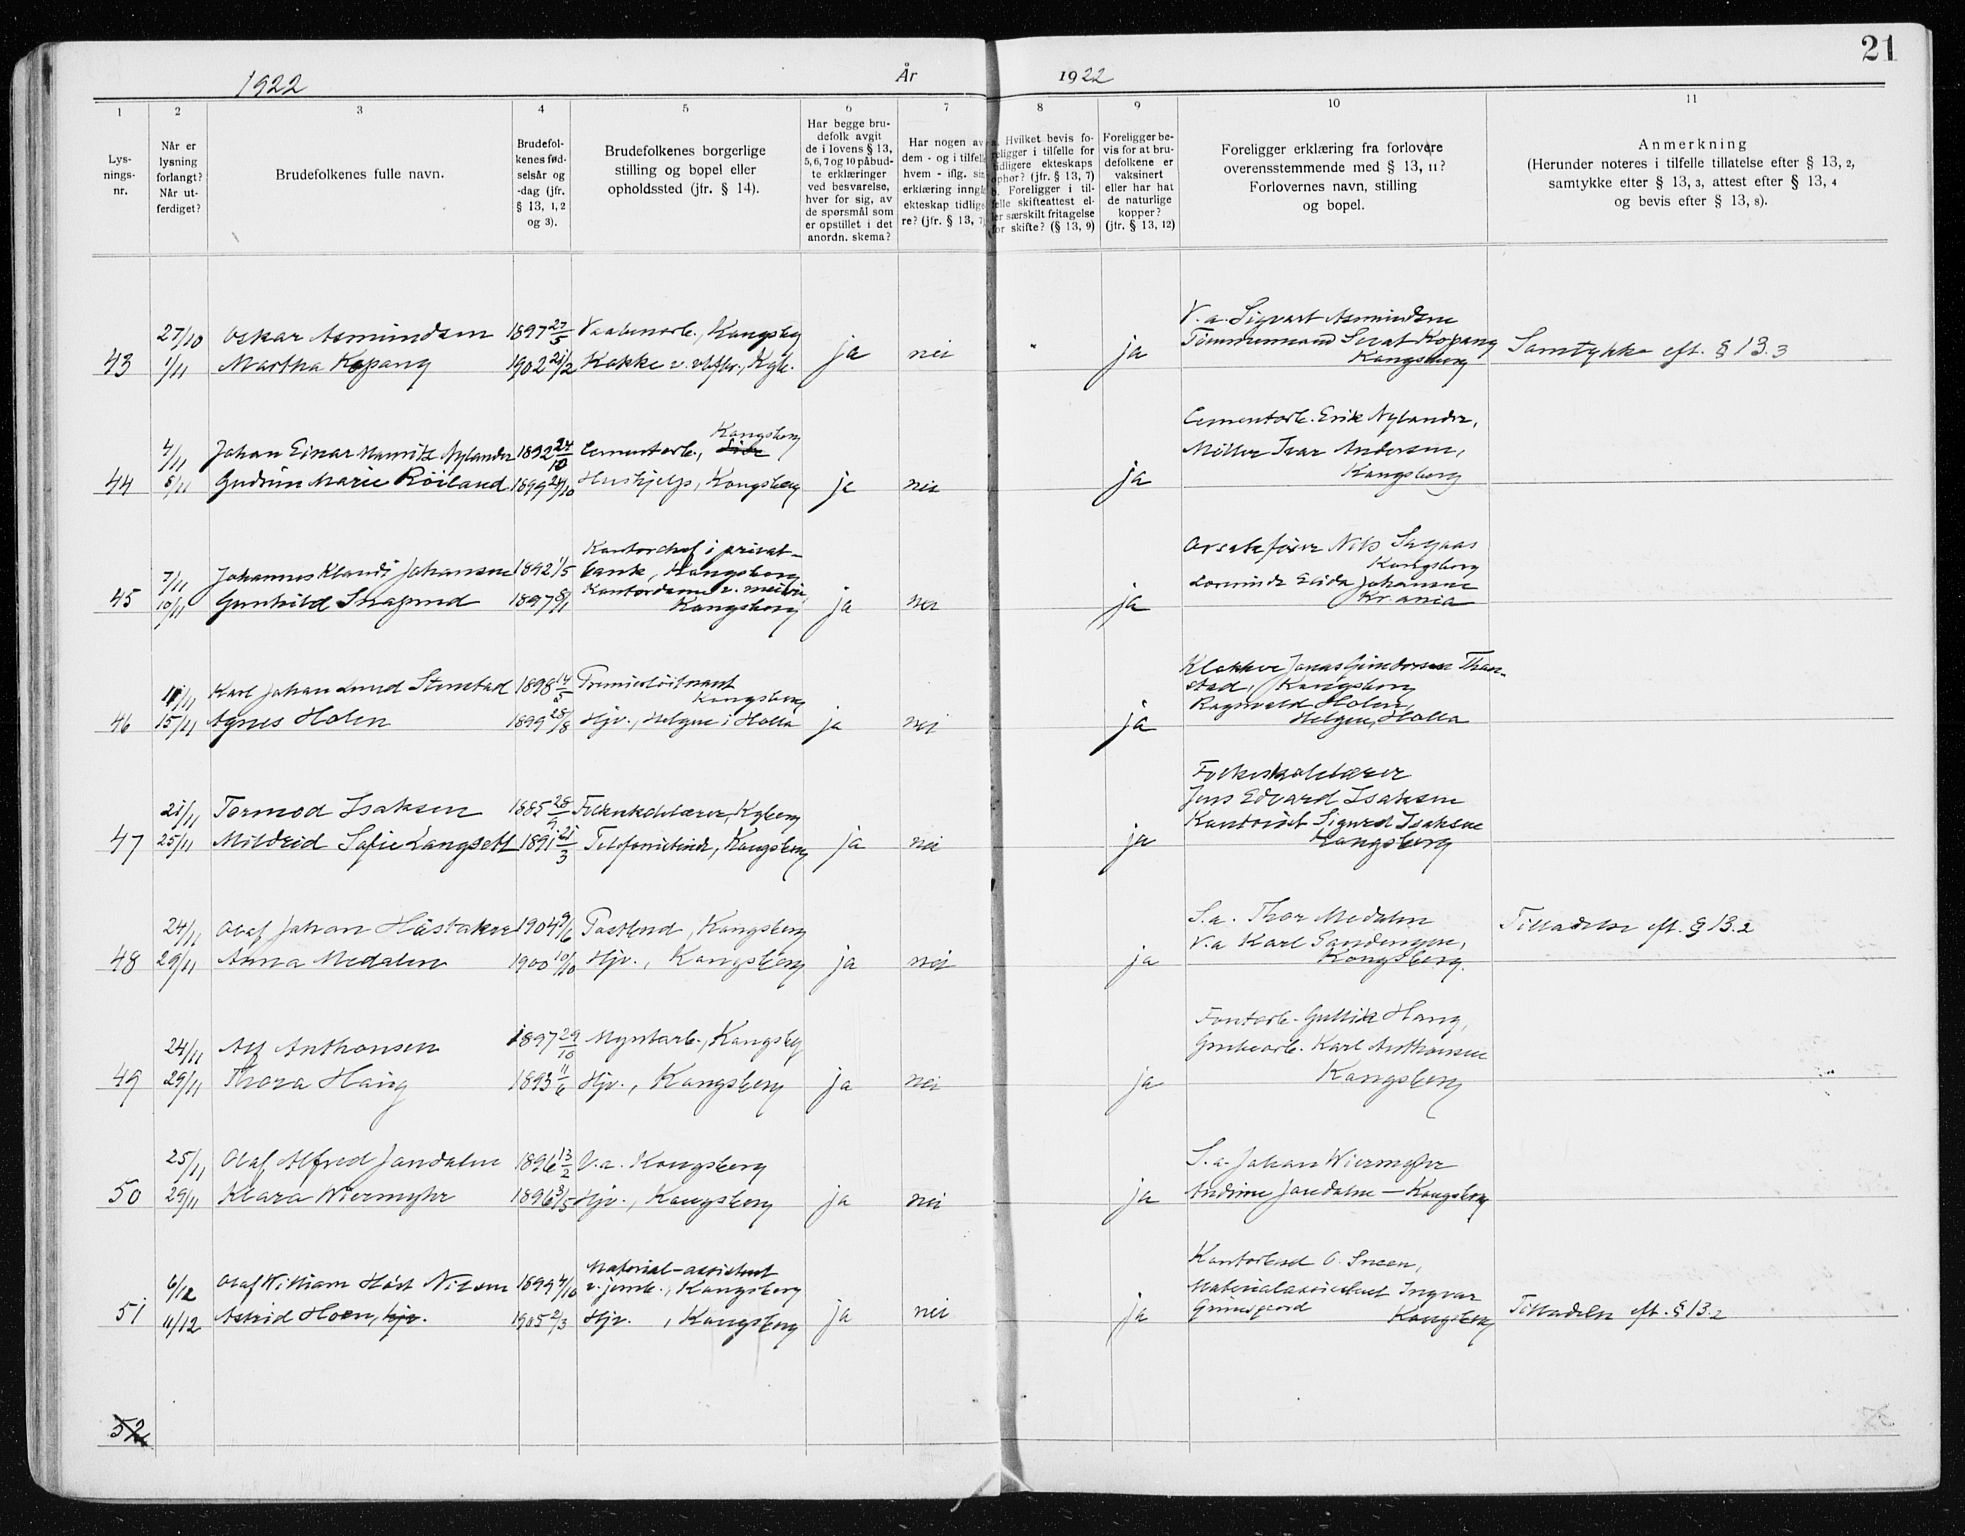 21
1922 År 1922
1 2 3 4 5 6 7 8 9 10 11
Lys-
nings-
nr.
Når er
lysning
forlangt?
Når ut-
ferdiget?
Brudefolkenes fulle navn.
Brudefol-
kenes fød-
selsår og
-dag (jfr.
§ 13, 1, 2
og 3).
Brudefolkenes borgerlige
stilling og bopel eller
opholdssted (jfr. § 14).
Har begge bru-
defolk avgit
de i lovens § 13,
5, 6, 7 og 10 påbud-
te erklæringer
ved besvarelse,
hver for sig, av
de spørsmål som
er opstillet i det
anordn. skema?
Har nogen av
dem - og i tilfelle
hvem - iflg. sin
erklæring inngå
ekteskap tidlige-
re? (jfr. § 13, 7)
a. Hvilket bevis fo-
religger i tilfelle for
tidligere ekteskaps
ophør? (jfr. § 13, 7)
b. Foreligger i til-
felle skifteattest el-
ler særskilt fritagelse
for skifte? (§ 13, 9)
Foreligger be-
vis for at bru-
defolkene er
vaksinert
eller har hat
de naturlige
kopper?
(jfr. § 13, 12)
Foreligger erklæring fra forlovere
overensstemmende med § 13, 11?
Forlovernes navn, stilling
og bopel.
Anmerkning
(Herunder noteres i tilfelle tillatelse efter § 13, 2,
samtykke efter § 13, 3, attest efter § 13, 4
og bevis efter § 13, 8).
27/10 Oskar Asmundsen 1897 27/5 Vaabenarb., Kongsbg
43 1/11 Martha Kopang 1902 21/2 Kokke v. , Kgb. ja nei " ja
V.a. Sigvart Asmundsen
Tømmermand Kopang
Kongsberg
Samtykke eft. § 13.3
4/11 Johan Einar Mauritz Nylander 1892 24/10 Cementarb., Kongsberg
44 8/11 Gudrun Marie Röiland 1899 24/10 Hushjelp, Kongsberg ja nei ja
Cementarb. Erik Nylander,
Møller Ivar Andersen,
Kongsberg
7/11 Johannes Klaudi Johansen 1892 1/5 Kontorchef i privat-
bank, Kongsberg
45 10/11 Gunhild 1897 8/1 Kontordame v. meieri,
Kongsberg ja nei ja
Nils
Kongsberg
Elida Johansen
Kr.ania
11/11 Karl Johan Lund Stenstad 1898 14/5 Premierløitnant
Kongsberg
46 15/11 Agnes Holen 1899 28/8 Hjv., Helgen i Holla ja nei ja
Klokker Jonas Gundersen
Kongsberg
Ragnvald Holen,
Helgen, Holla
21/11 Tormod Isaksen 1885 28/9 Folkeskolelærer, Kgberg
47 25/11 Mildrid Sofie Langseth 1891 21/3 Telefonistinde, Kongsberg ja nei ja
Folkeskolelærer
Jens Edvard Isaksen
Kontorist Sigurd Isaksen
Kongsberg
24/11 Olaf Johan Håstaker 1904 9/6 Postbud, Kongsberg
48 29/11 Anna Medalen 1900 10/10 Hjv., Kongsberg ja nei ja
S.a. Thor Medalen
V.a Karl
Kongsberg.
Tilladelse eft. § 13.2
24/11 Alf Anthonsen 1897 29/10 Myntarb., Kongsbg
49 29/11 Thora Haug 1893 11/6 Hjv., Kongsberg ja nei ja
Gullik Haug,
Grubearb. Karl Anthonsen
Kongsberg
25/11 Olaf Alfred Jondalen 1896 13/2 V.a. Kongsberg
50 29/11 Klara Wiermyhr 1896 3/5 Hjv., Kongsberg ja nei ja
S.a. Johan Wiermyhr
Andrine Jondalen - Kongsberg
6/12 Olaf William Høst Nilsen 1899 4/10 Material-assistent
v. jernb., Kongsberg
51 11/12 Astrid Hoen, hjv. 1905 2/3 Hjv. , Kongsberg ja nei ja
Kontorbud O. Sneen,
Materialassistent Ingvar
Grimsgaard Kongsberg
Tilladelse eft. § 13.2
52